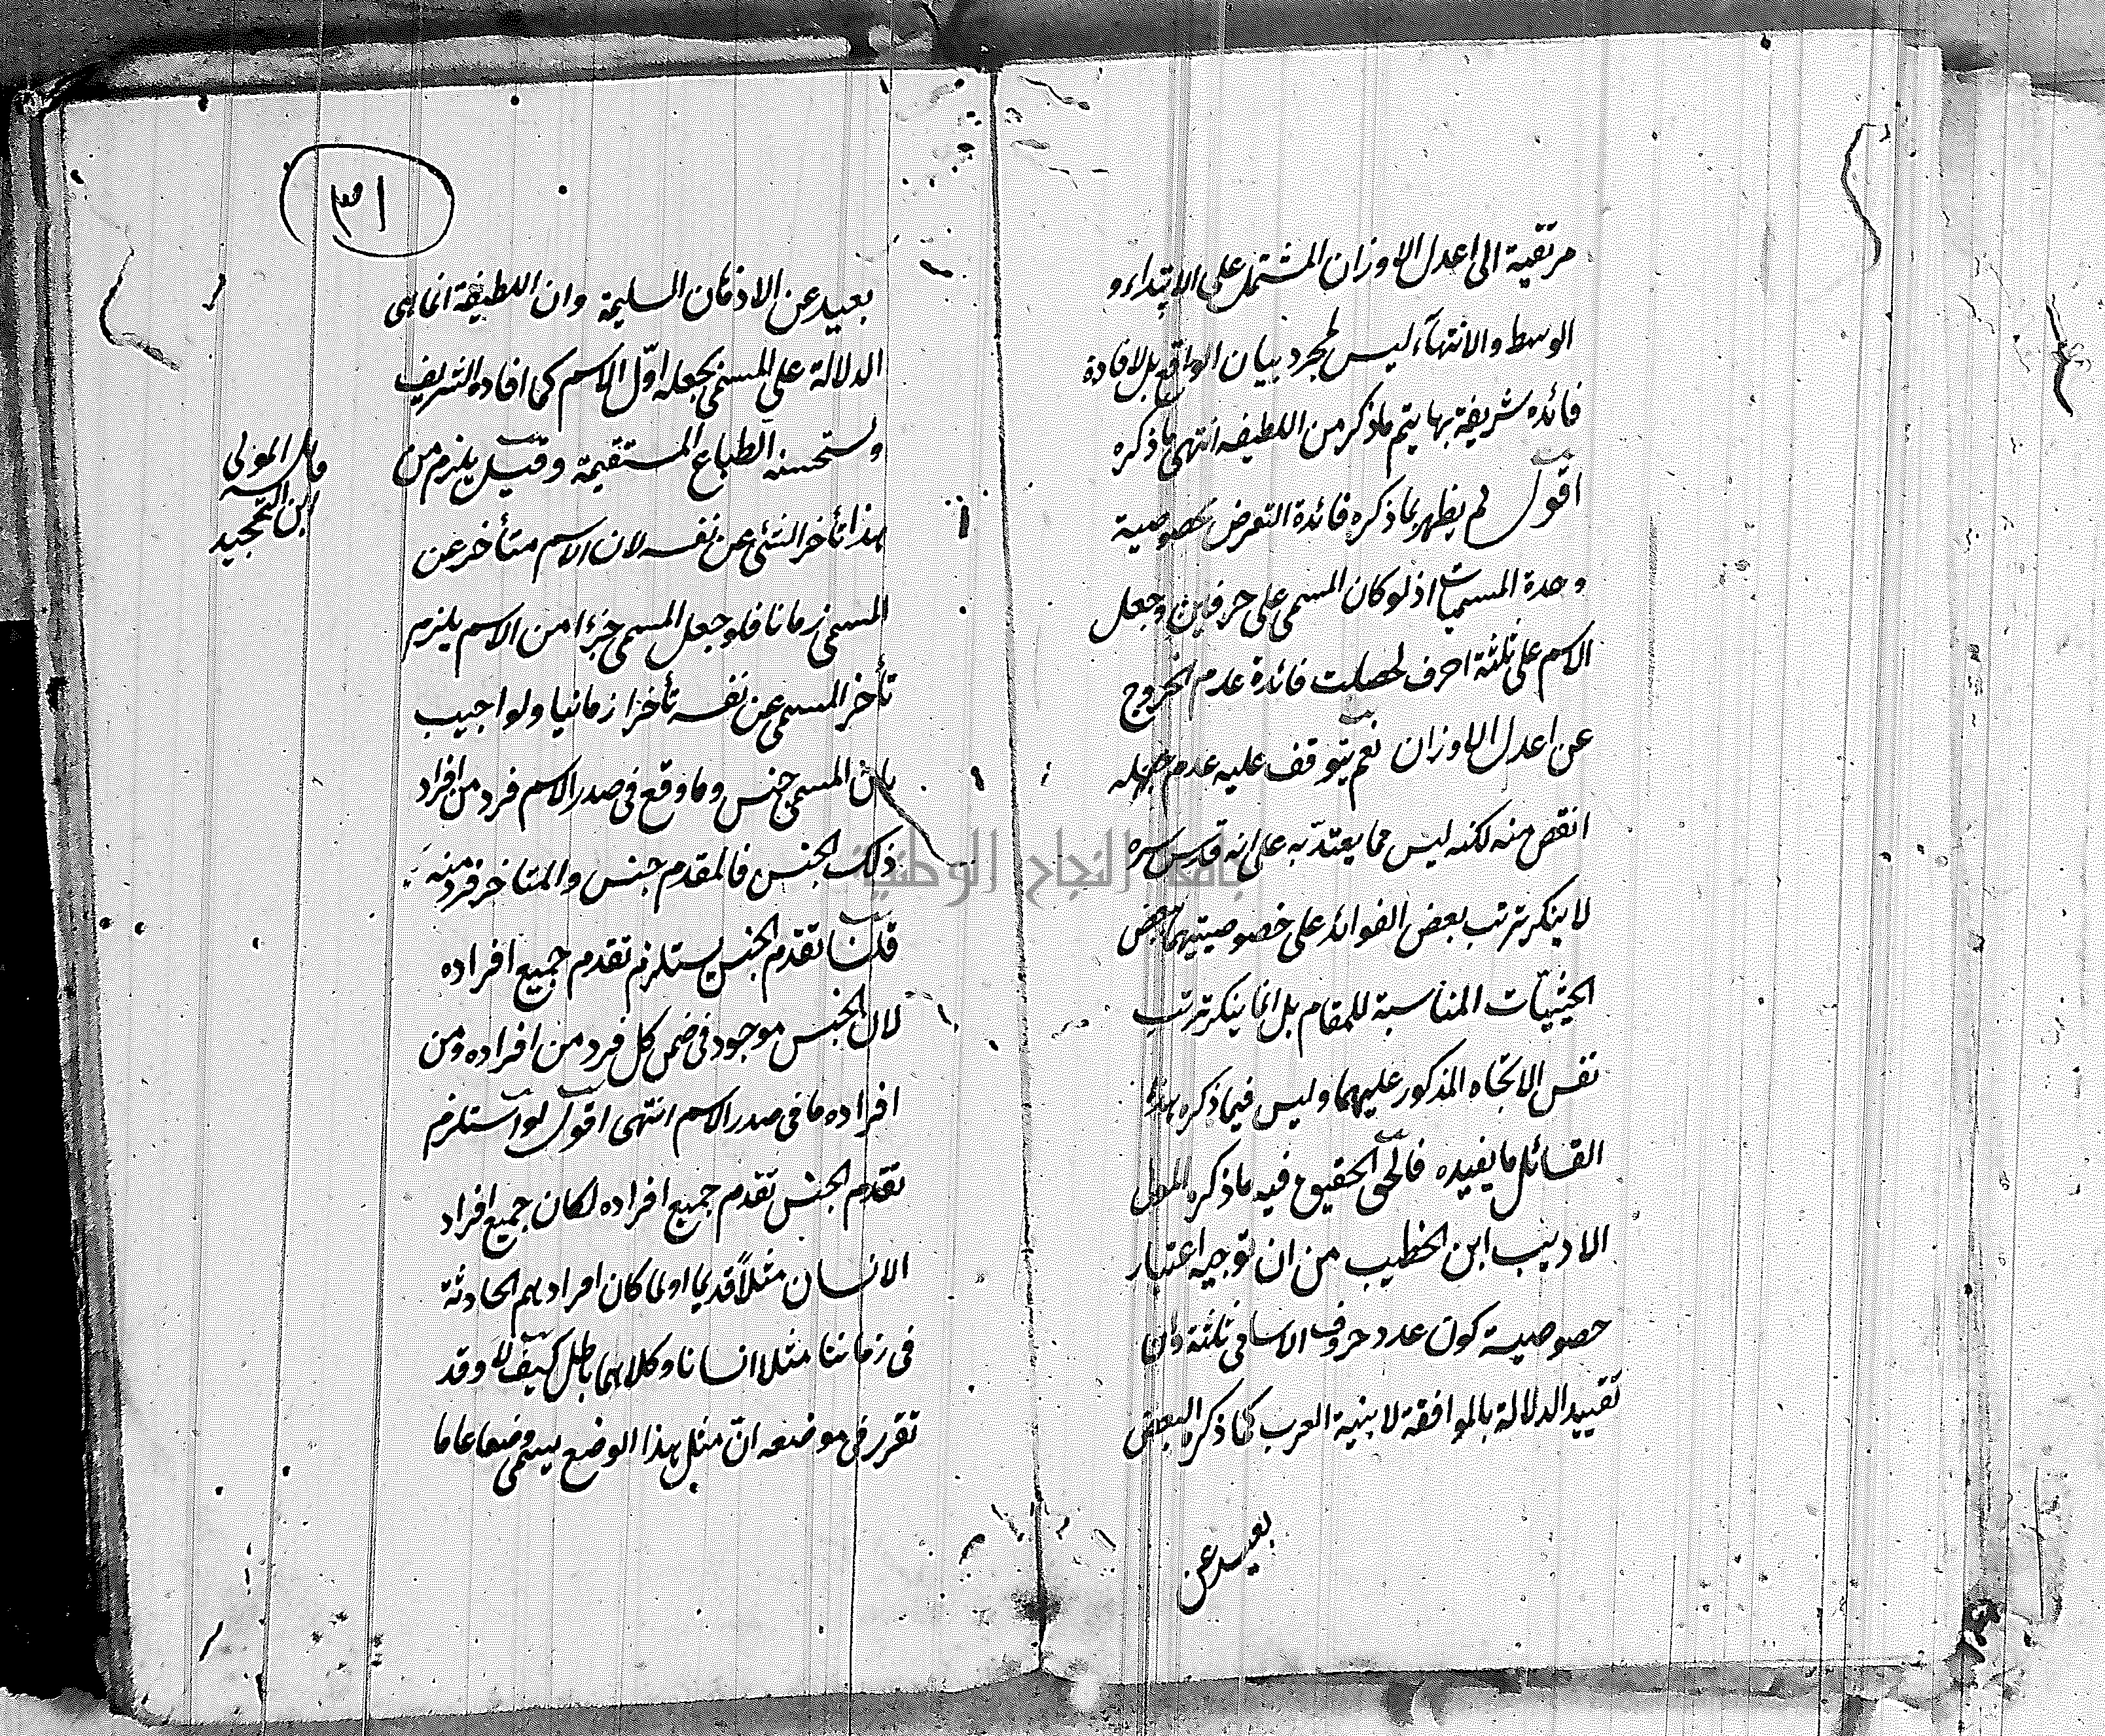 مرتقية الى اعدل الاوزان المشتمل على الابتداء و
الوسط والانتهآء ليس لمجرد بيان الواقع بل لافادة
فائده شريفة بها يتم ماذكر من اللطيفه انتهى ما ذكره
اقول لم يظهر بما ذكره فائدة التعرض بخصوصية
وحدة المسميات اذ لو كان المسمى على حرفين وجعل
الاسم على ثلثة احرف لحصلت فائدة عدم الخروج
عن اعدل الاوزان نعم يتوقف عليه عدم جهله
انقص منه لكنه ليس مما يعتدّ به على انه قدس سره
لا ينكر ترتب بعض الفوائد على خصوصيتهما ببعض
الحيثيّات المناسبة للمقام بل انما ينكر ترتب
نفس الاتجاه المذكور عليهما وليس فيما ذكره هذا
القائل ما يفيده فالحق الحقيق فيه ما ذكره المولى
الاديب ابن الخطيب من ان توجيه اعتبار
خصوصية كون عدد حروف الاسامى ثلثة وان
تقييد الدلالة بالموافقة لابنية العرب كما ذكره البعض
بعيد عن
٣١
بعيد عن الاذهان السليمة وان اللطيفة انما هى
الدلالة على المسمى بجعله اوّل الاسم كما افاده الشريف
وتستحسنه الطباع المستقيمة وقيل يلزم من
هذا تأخر الشئ عن نفسه لان الاسم متأخر عن
المسمى زمانا فلو جعل المسمى جزءا من الاسم يلزم
تأخر المسمى عن نفسه تأخرا زمانيا ولو اجيب
بان المسمى جنس وما وقع فى صدر الاسم فرد من افراد
ذلك الجنس فالمقدم جنس والمتاخر فرد منه
قلنا تقدم الجنس يستلزم تقدم جميع افراده
لان الجنس موجود فى ضمن كل فرد من افراده ومن
افراده ما فى صدر الاسم انتهى اقول لو استلزم
تقدم الجنس تقدم جميع افراده لكان جميع افراد
الانسان مثلاً قديما او لما كان افرادهم الحادثة
فى زماننا مثلا انسانا وكلاهما باطل كيف لا وقد
تقرر فى موضعه انّ مثل هذا الوضع يسمى وضعا عاما
قال المولى
ابن التمجيد
جامعة النجاح الوطنية